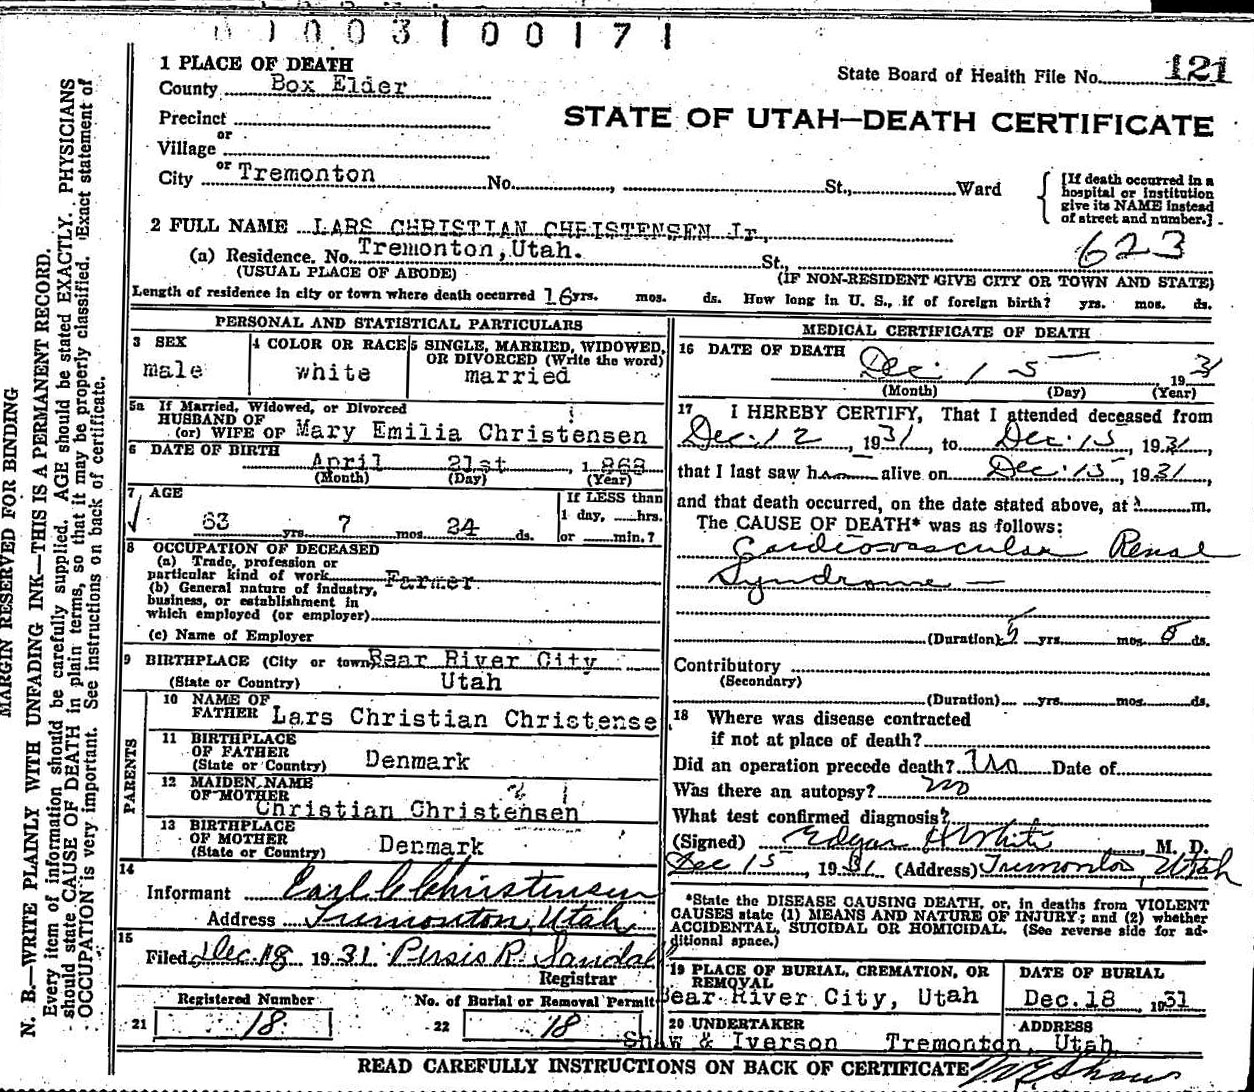 1003100171
1 PLACE OF DEATH
County Box Elder
State Board of Health File No. 121
STATE OF UTAH—DEATH CERTIFICATE
Precinct
or
Village
or
City Tremonton No. , St., Ward
[If death occurred in a
hospital or institution
give its NAME instead
of street and number.]
2 FULL NAME LARS CHRISTIAN CHRISTENSEN Jr,
623
(a) Residence. No. Tremonton, Utah. St.,
(USUAL PLACE OF ABODE) (IF NON-RESIDENT GIVE CITY OR TOWN AND STATE)
Length of residence in city or town where death occurred 16 yrs. mos. ds. How long in U. S., if of foreign birth? yrs. mos. ds.
PERSONAL AND STATISTICAL PARTICULARS
3 SEX
male
4 COLOR OR RACE
white
5 SINGLE, MARRIED, WIDOWED,
OR DIVORCED (Write the word)
married
5a If Married, Widowed, or Divorced
HUSBAND OF
(or) WIFE OF Mary Emilia Christensen
6 DATE OF BIRTH
April 21st , 1 868
(Month) (Day) (Year)
7 AGE
63 yrs. 7 mos. 24 ds.
If LESS than
1 day, hrs.
or min.?
8 OCCUPATION OF DECEASED
(a) Trade, profession or
particular kind of work Farmer
(b) General nature of industry,
business, or establishment in
which employed (or employer)
(c) Name of Employer
9 BIRTHPLACE (City or town) Bear River City
(State or Country) Utah
PARENTS
10 NAME OF
FATHER Lars Christian Christense
11 BIRTHPLACE
OF FATHER
(State or Country) Denmark
12 MAIDEN NAME
OF MOTHER
Christian Christensen
13 BIRTHPLACE
OF MOTHER
(State or Country) Denmark
14
Informant Earl C Christensen
Address Tremonton, Utah
15
Filed Dec. 18 1931 Persis R. Sandal
Registrar
Registered Number
21 18
No. of Burial or Removal Permit
22 18
MEDICAL CERTIFICATE OF DEATH
16 DATE OF DEATH
Dec. 15 1931
(Month) (Day) (Year)
17 I HEREBY CERTIFY, That I attended deceased from
Dec. 12, 1931, to Dec. 15, 1931
that I last saw h alive on Dec. 15, 1931,
and that death occurred, on the date stated above, at m.
The CAUSE OF DEATH* was as follows:
Cardiovascular Renal
Syndrome —
(Duration) yrs. mos. ds.
Contributory
(Secondary)
(Duration) yrs. mos. ds.
18 Where was disease contracted
if not at place of death?
Did an operation precede death? No Date of
Was there an autopsy? no
What test confirmed diagnosis?
(Signed) Edgar H White, M. D.
Dec 15 1931 (Address) Tremonton, Utah
*State the DISEASE CAUSING DEATH, or, in deaths from VIOLENT
CAUSES state (1) MEANS AND NATURE OF INJURY; and (2) whether
ACCIDENTAL, SUICIDAL OR HOMICIDAL. (See reverse side for ad-
ditional space.)
19 PLACE OF BURIAL, CREMATION, OR
REMOVAL
Bear River City, Utah
DATE OF BURIAL
Dec. 18 , 1931
20 UNDERTAKER
Shaw & Iverson
ADDRESS
Tremonton, Utah
READ CAREFULLY INSTRUCTIONS ON BACK OF CERTIFICATE
MARGIN RESERVED FOR BINDING
N. B.—WRITE PLAINLY WITH UNFADING INK—THIS IS A PERMANENT RECORD.
Every item of information should be carefully supplied. AGE should be stated EXACTLY. PHYSICIANS
should state CAUSE OF DEATH in plain terms, so that it may be properly classified. Exact statement of
OCCUPATION is very important. See instructions on back of certificate.